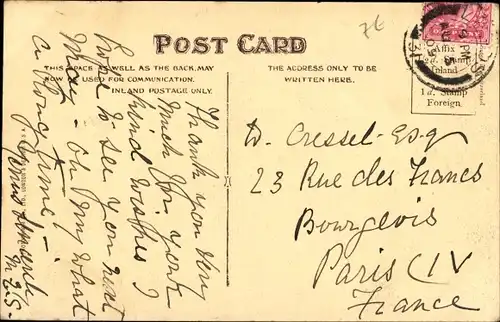 7£
POST CARD
THIS SPACE, AS WELL AS THE BACK, MAY
NOW BE USED FOR COMMUNICATION.
INLAND POSTAGE ONLY.
THE ADDRESS ONLY TO BE
WRITTEN HERE.
Affix
Stamp
Inland
1d. Stamp
Foreign.
Thank you very
much for your
kind wishes I
hope to see you next
Wedy - Oh my what
a long time!
Yours sincerely
W. Cressel - Esq
23 Rue des Francs
Bourgeois
Paris (IV
France